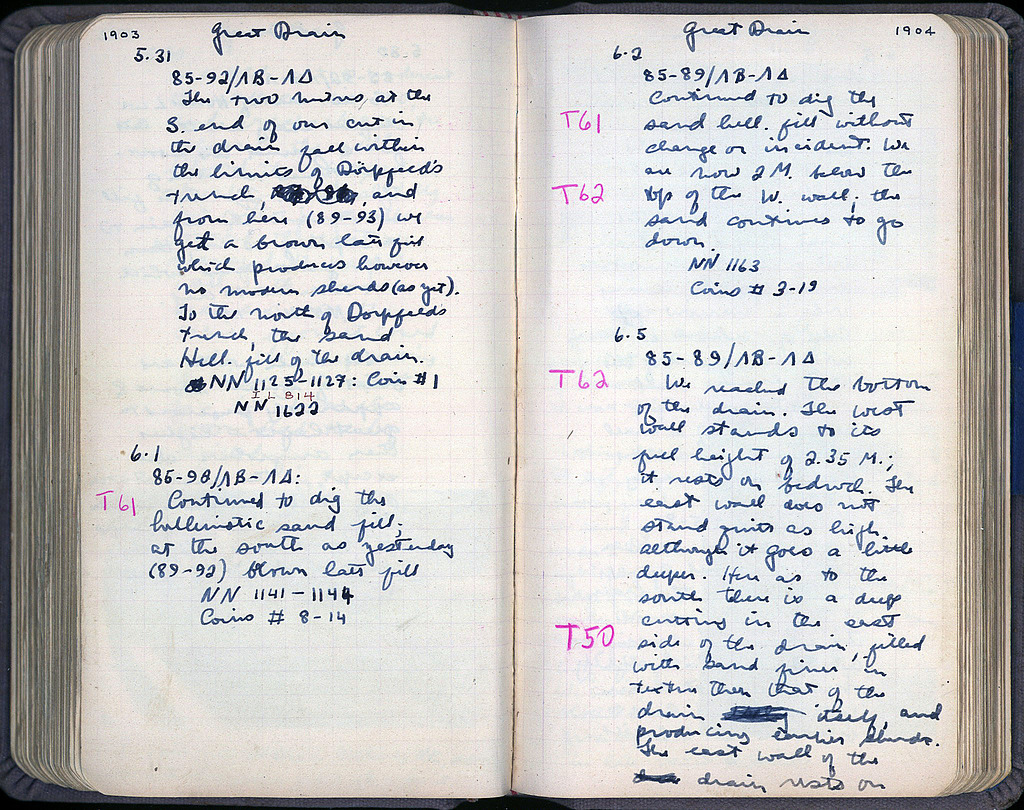 1903
Great Drain
5.31
85-92/ΛΒ-ΛΔ
The two mins, at the
S. end of our cut in
the drain fall within
the limits of Dörpfeld's
trench, and
from here (89-93) we
get a brown late fill
which produces however
no modern sherds (as yet).
To the north of Dorpfelds
trench, the sand
Hell. fill of the drain.
NN 1125-1127: Coin #1
IL 814
NN 1622
6.1
85-98/ΛΒ-ΛΔ:
T61
Continued to dig the
hellenistic sand fill;
at the south as yesterday
(89-92) brown late fill
NN 1141-1144
Coins # 8-14
Great Drain
1904
6.2
85-89/ΛΒ-ΛΔ
Continued to dig the
T61
sand hell. fill without
change or incident. We
are now 2 M. below the
T62
top of the W. wall; the
sand continues to go
down.
NN 1163
Coins # 3-19
6.5
85-89/ΛΒ-ΛΔ
T62
We reached the bottom
of the drain. The west
wall stands to its
full height of 2.35 M.;
it rests on bedrock. The
east wall does not
stand quite as high
although it goes a little
deeper. Here as to the
south there is a deep
cutting in the east
T50
side of the drain, filled
with sand finer in
texture then that of the
drain itself, and
producing earlier sherds.
The east wall of the
drain rests on